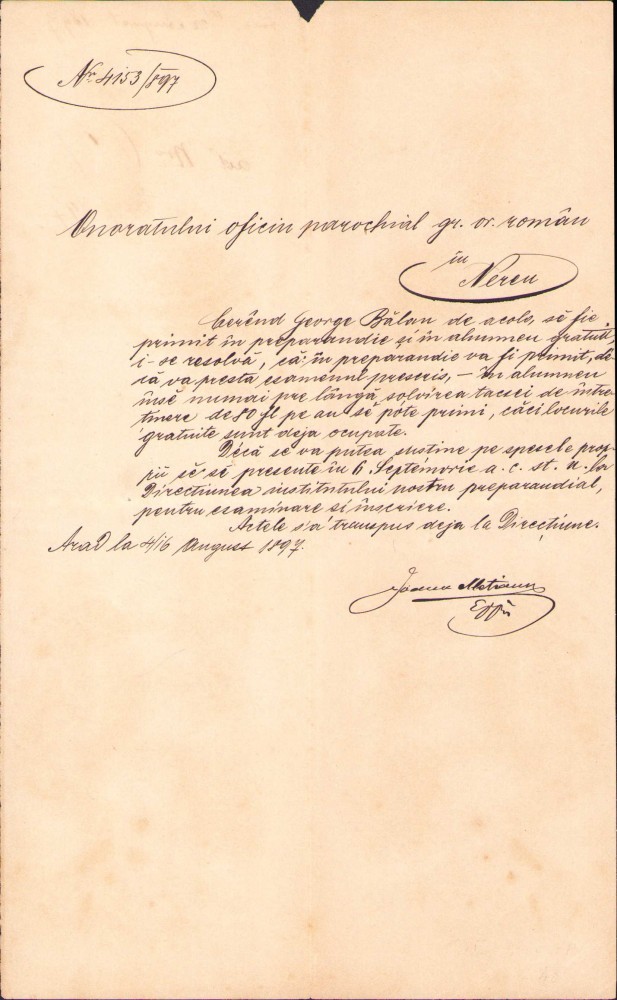 Nr. 4153/897
Onoratului oficiu parochial gr. or. român
in
Nereu
Cerênd George Bălan de acolo, să fie
primit in preparandie și in alumneu gratuit,
i-se resolvă, că in preparandie va fi primit, de-
că va presta esamenul prescris, – in alumneu
însĕ numai pre lângă solvirea tacsei de între-
ținere de 80 fl pe an se pote primi, căci locurile
gratuite sunt deja ocupate.
Décă se va putea sustine pe spesele prop-
rii sĕ se presente in 6 Septemvrie a. c. st. n. la
Directiunea institutului nostru preparandial,
pentru examinare si inscriere.
Actele s'a transpus deja la Direcțiune.
Arad la 4/16 August 1897.
Ioan Metianu
Eppu